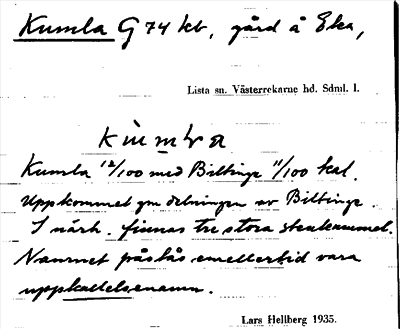 Kumla G 74 kb, gård å Eka,
Lista sn. Västerrekarne hd. Sdml. l.
Kumla 12/100 med Biltinge 11/100 kal.
Uppkommet gm delningen av Biltinge.
I närh. finnas tre stora stenkummel.
Namnet påstås emellertid vara
uppkallelsenamn.
Lars Hellberg 1935.